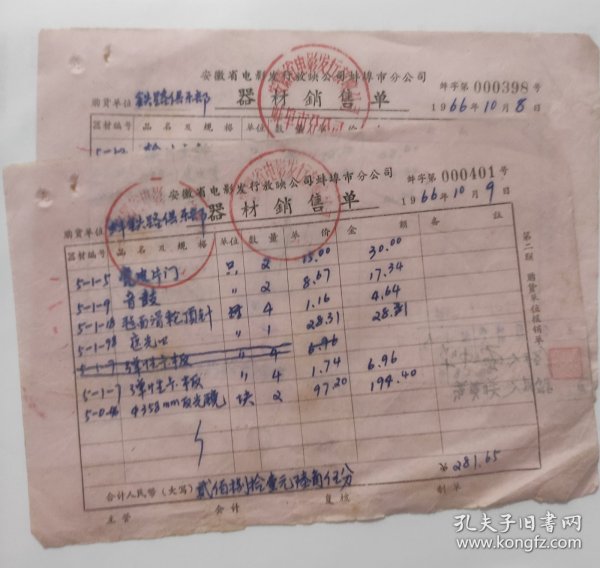 安徽省电影发行放映公司蚌埠市分公司
蚌字第 000398 号
购货单位 铁路俱乐部 器材销售单 1966年10月8日
器材编号 品名及规格 单位 数量
安徽省电影发行放映公司蚌埠市分公司
蚌字第 000401 号
购货单位 蚌铁路俱乐部 器材销售单 1966年10月9日
器材编号 品名及规格 单位 数量 单价 金额 备注
5-1-5 片门 只 2 15.00 30.00
5-1-9 音鼓 〃 2 8.67 17.34
5-1-18 滑轮顶针 4 1.16 4.64
5-1-98 〃 1 28.31 28.31
5-1-7 弹性卡板 〃 4 6.96
5-1-7 弹性卡板 〃 4 1.74 6.96
5-0-46 Φ358mm反光镜 块 2 97.20 194.40
合计人民币(大写) 贰佰捌拾壹元陆角伍分 ¥281.65
主管 会计 复核 制单
第二联 购货单位报销单
孔夫子旧书网
www.kongfz.com